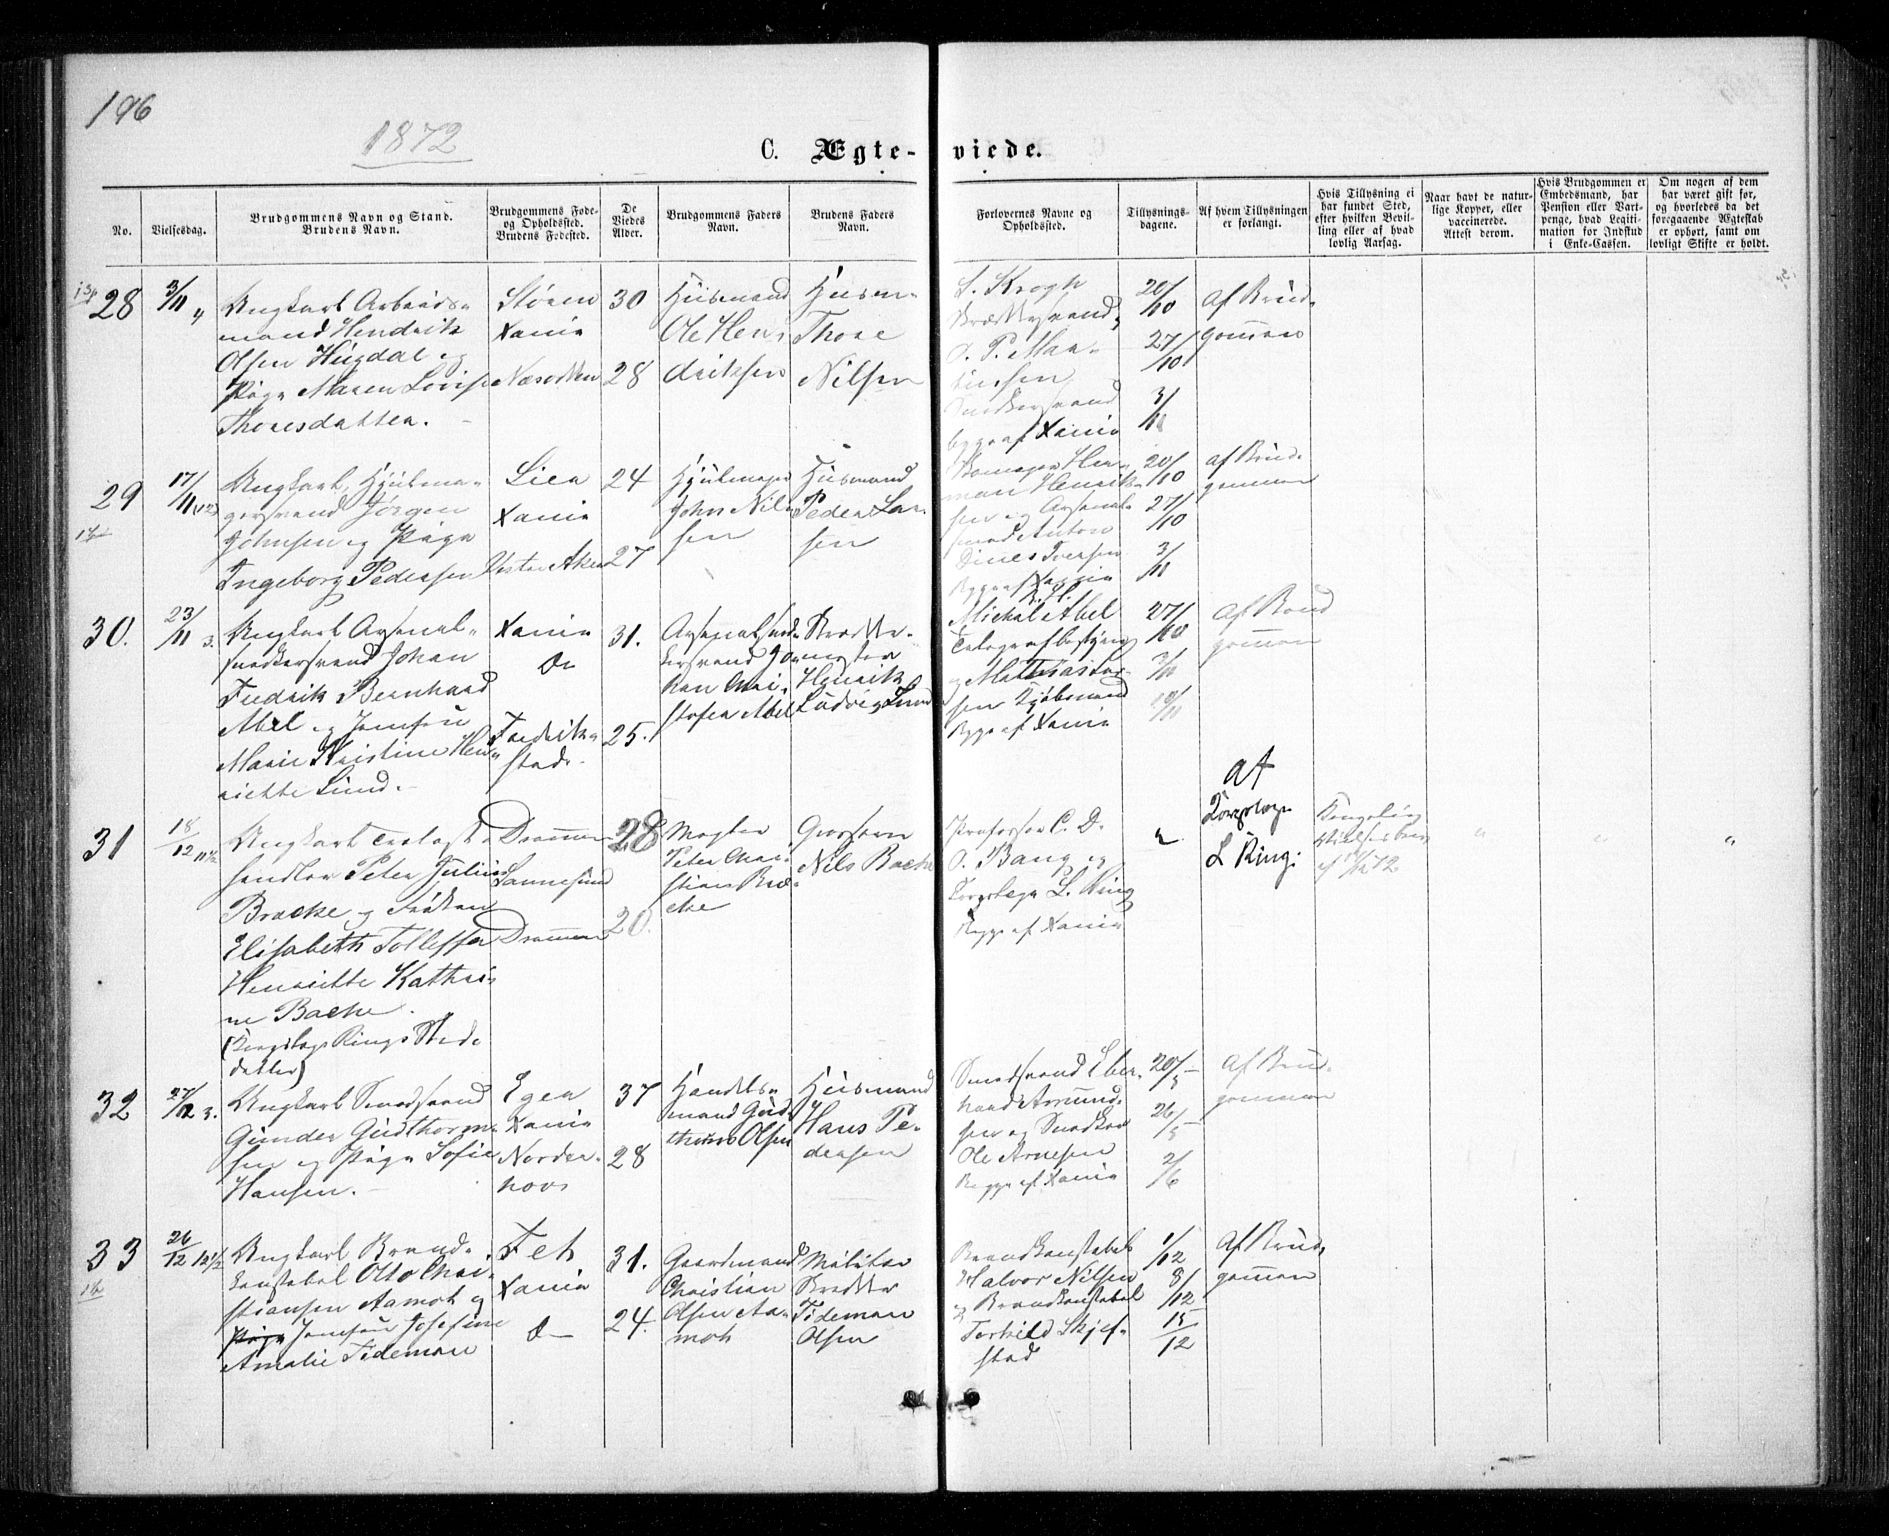 196
1872
C. Ægte-
viede.
No.
Vielsesdag.
Brudgommens Navn og Stand.
Brudens Navn.
Brudgommens Føde-
og Opholdssted.
Brudens Fødested.
De
Viedes
Alder.
Brudgommens Faders
Navn.
Brudens Faders
Navn.
Forlovernes Navne og
Opholdssted.
Tillysnings-
dagene.
Af hvem Tillysningen
er forlangt.
Hvis Tillysning ei
har fundet Sted,
efter hvilken Bevil-
ling eller af hvad
lovlig Aarsag.
Naar havt de natur-
lige Kopper, eller
vaccinerede.
Attest derom.
Hvis Brudgommen er
Embedsmand, har
Pension eller Vart-
penge, hvad Legiti-
mation for Indskud
i Enke-Cassen.
Om nogen af dem
har været gift før,
og hvorledes da det
foregaaende Ægteskab
er ophørt, samt om
lovligt Skifte er holdt.
28
3/11
Ungkarl Arbeids-
mand Hendrik
Olsen Hügdal og
Pige Maren Lovise
Thoresdatter.
Støren
Xania
Næsodden
30
28
Hüsmand
Ole Hen-
driksen
Hüsm-
Thore
Nilsen
S. Krogh
Skræddersvend,
O. P. Mar-
tinsen
Snedkersvend
begge af Xania
20/10
27/10
3/11
Af Brüd-
gommen
29
17/11
Ungkarl Hjülma-
gersvend Jørgen
Johnsen og Pige
Ingeborg Pedersen
Lier
Xania
Vestre Aker
24
27
Hjülmager
John Nil-
sen
Hüsmand
Peder Lar-
sen
man Henrik-
sen og Arsenal-
smed Anton
Dines Iversen
Begge af Xania
20/10
27/10
3/11
af Brüd-
gommen
30.
23/11 3.
Ungkarl Arsenal-
snedkersvend Johan
Fredrik Bernhard
Abel og Jomfrü
Marie Kristine Hen-
riette Lünd.
Xania
do
Fredrik-
stad.
31.
25.
Arsenalsned-
kersvend Jo-
han Chri-
stofer Abel
Skrædder-
mester
Henrik
Lüdvig Lünd
Michal Abel
Telegrafbestyrer
og Mathias Lar-
sen Kjøbmand
Begge af Xania
27/10
3/11
10/11
Af Brüd
gommen
31
18/12
Ungkarl Trelast-
handler Peter Julius
Bracke og Frøken
Elisabeth Tollefsen
Henriette Kathri-
ne Backe.
(Korpslæge Rings Sted-
datter)
Drammen
Sannesund
Drammen
28
20.
Mægler
Peter Chri-
stian Bra-
cke
Grosserer
Nils Backe
Professor C. D.
O. Bang og
Korpslæge L. Ring
Begge af Xania
"
af
Korpslæge
L Ring:
Kongelig
"
"
"
32
27/12 3.
Ungkarl Smedsvend
Günder Güdthorm-
sen og Pige Sofie
Hansen.
Eger
Xania
Norder-
hov
37
28
Handels-
mand Güd-
thorm Olsen
Hüsmand
Hans Pe-
dersen
Smedsvend Eber-
hard Amünd-
sen og Snedker
Ole Arnesen
Begge af Xania
20/5
26/5
2/6
Af Brüd-
gommen
33
26/12 12 1/2
Ungkarl Brand-
konstabel Otto Chri-
stiansen Aamot og
Pige Jomfrü Josefine
Amalie Tideman
Fet
Xania
do
31.
24.
Gaardmand
Christian
Olsen Aa-
mot
Militær
Skrædder
Tideman
Olsen
Brandkonstabel
Halvor Nilsen
og Brandkonstabel
Torkild Skjef-
stad
1/12
8/12
15/12
Af Brüd-
gommen